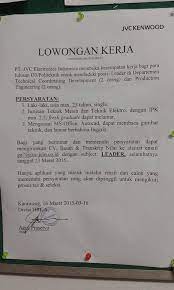 JVCKENWOOD
LOWONGAN KERJA
PT. JVC Electronics Indonesia membuka kesempatan kerja bagi para
lulusan D3/Politeknik untuk menduduki posisi Leader di Departemen
Technical Coordinating Development (2 orang) dan Production
Engineering (2 orang).
PERSYARATAN:
1. Laki-laki, usia max. 25 tahun, single.
2. Jurusan Teknik Mesin dan Teknik Elektro, dengan IPK
fresh graduate dapat melamar.
3. Menguasai MS-Office, Autocad, dapat membaca gambar
teknik, dan bahasa Inggris.
Bagi yang berminat dan memenuhi persyaratan di atas dapat
mengirimkan CV, Ijazah & Transkrip Nilai ke alamat email
dengan subject: LEADER, selambatnya
tanggal 21 Maret 2015.
Hanya aplikasi yang sesuai dan calon yang
memenuhi persyaratan yang akan dipanggil untuk mengikuti
proses seleksi.
Karawang, 16 Maret 2015